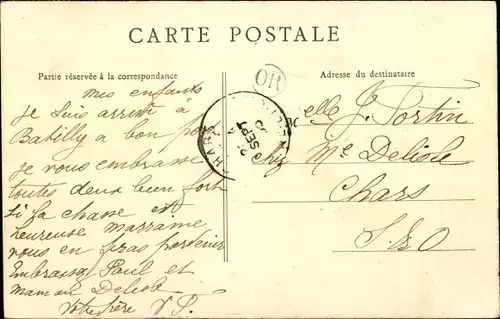 CARTE POSTALE
Partie réservée à la correspondance
Adresse du destinataire
mes enfants
je suis arrivé à
Batilly a bon port
je vous embrasse
toutes deux bien fort
si la chasse est
heureuse marraine
vous en fera parvenir
Embrassez Paul et
maman Delisle
Votre père V F.
OR
SEPT
Melle J. Fortin
chez Me Delisle
Chars
S.&O